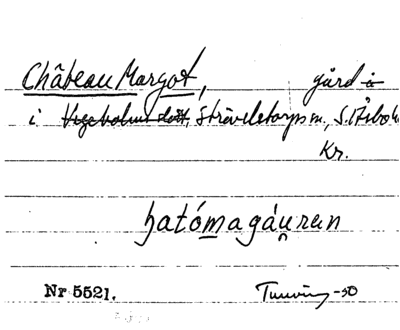 Château Margot, gård i
i Vegeholms slott, Strövelstorps sn., S. Åsbo h
Kr.
hatómagáu̯ren
Nr 5521.
-50